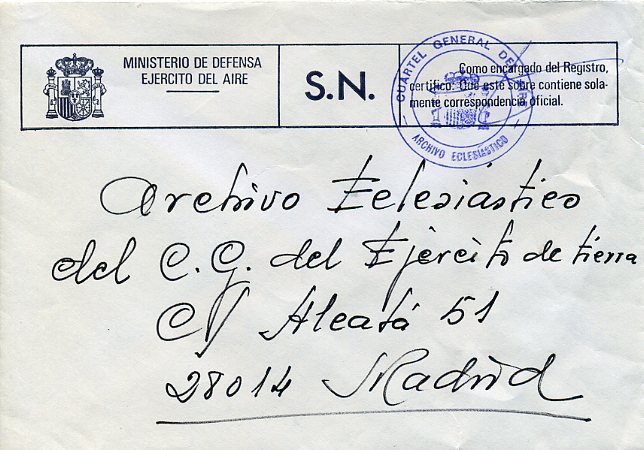 MINISTERIO DE DEFENSA
EJERCITO DEL AIRE
S.N.
Como encargado del Registro,
certifico: Que este sobre contiene sola-
mente correspondencia oficial.
CUARTEL GENERAL DEL AIRE
ARCHIVO ECLESIASTICO
Archivo Eclesiástico
del C. G. del Ejército de tierra
C/ Alcalá 51
28014 Madrid